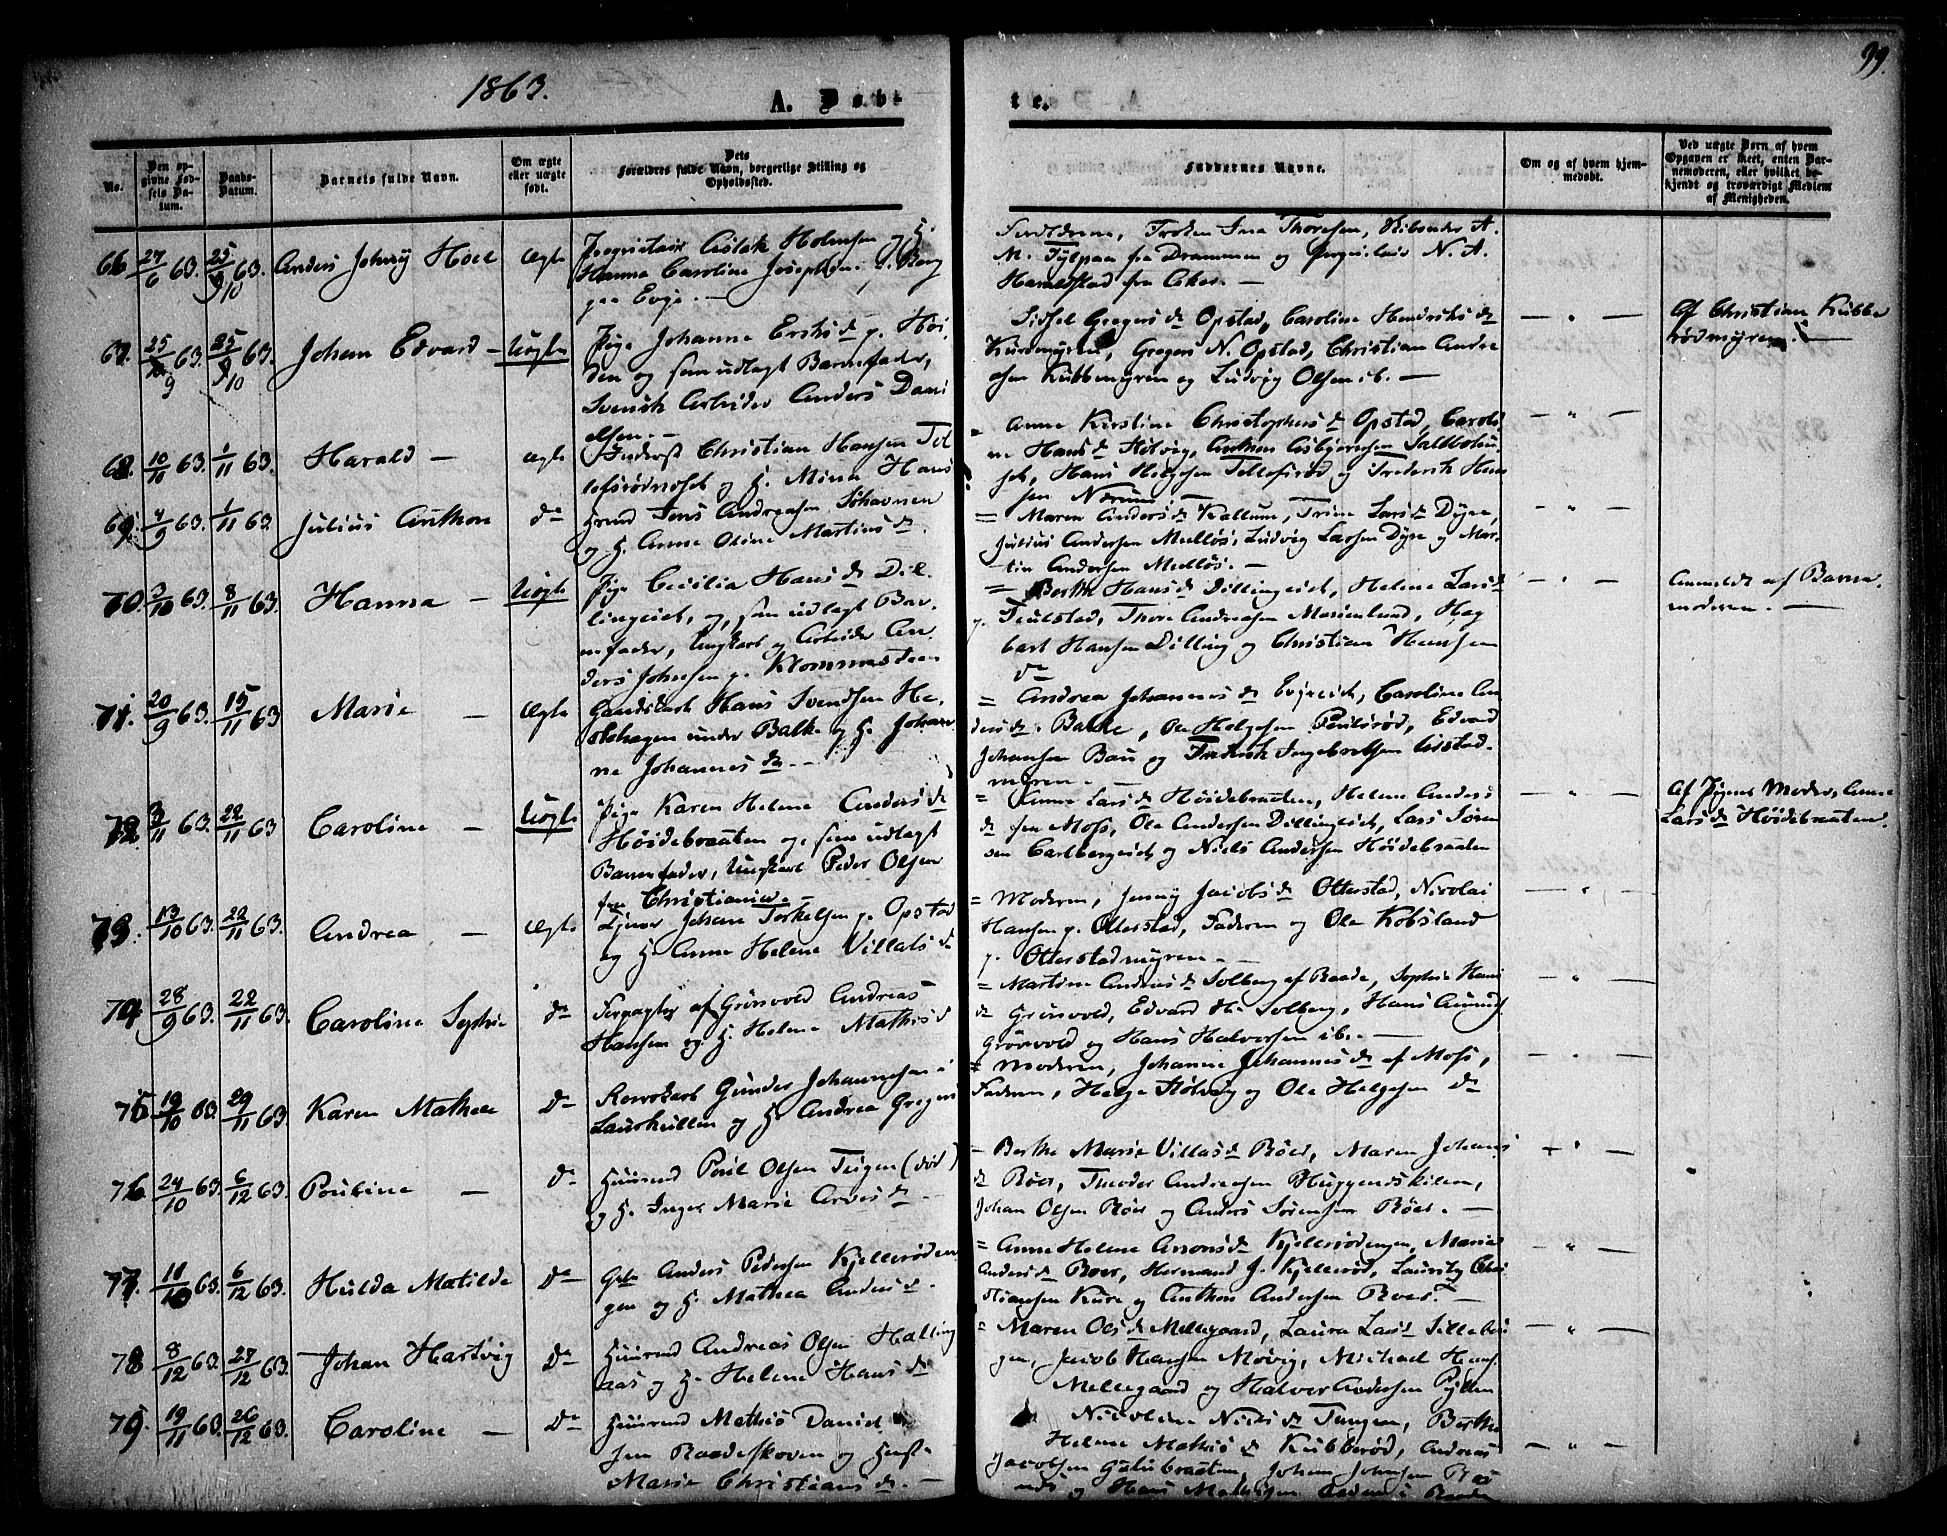 1863.
A. Døbte.
99.
No.
Den opgivne Fødsels Datum.
Daabs-Datum.
Barnets fulde Navn.
Om ægte eller uægte født.
Dets Forældres fulde Navn, borgerlige Stilling og Opholdssted.
Faddernes Navne.
Om og af hvem hjemmedøbt.
Ved uægte Børn af hvem Opgaven er skeet, enten Barnemoderen, eller hvilket bekjendt og troværdigt Medlem af Menigheden.
66 27/6 63. 25/10 63. Anders Johnny Hoel Ægte
Proprietair Aslak Holmsen og H.
Hanna Caroline Josephine, f. Berg
paa Evje. —
Forældrene, Frøken Ina Thoresen,
fra Drammen og Proprietair N. A.
Haraldstad fra Aker. —
67. 25/9 63 25/10 63. Johan Edvard — Uægte
Pige Johanne Eriksd. p. Høi-
den og som udlagt Barnefader,
Svensk Arbeider Anders Dani
elsen. —
Sidsel Gregers d. Opstad, Caroline Hendriks d.
Gregers N. Opstad, Christian Andre
asen Kubbemyren og Ludvig Olsen ib. —
— " —
Af Christian Kubbe
rødmyren. —
68. 10/10 63. 1/11 63. Harald — Ægte
Inderst Christian Hansen Tol
lefsrødneset og H. Mina Hans
= Anne Kirstine Christophers d. Opstad, Caroli
ne Hans d. Hilvig, Anthon Asbjørnsen
Hans Helgesen Tollefsrød og Frederik Han
sen Norum. —
— " —
69. 4/9 63. 1/11 63. Julius Anthon d.
Grmd Jens Andreasen Sohavnen
og H. Anne Oline Martins d.
= Maren Anders d. Kallum, Trine Lars d. Dyre,
Julius Andersen Melløs, Ludvig Larsen Dyre og Mar-
tin Andersen Melløs. —
— " —
70. 3/10 63. 8/11 63. Hanna — Uægte
Pige Cecilia Hans d. Dil-
lingeiet, og, som udlagt Bar-
nefader, Ungkarl og Arbeider An-
ders Johnsen p. Krommesteen
= Berthe Hans d. Dillingeiet, Helene Lars d.
p. Teulstad, Thore Andreasen Marienlund, Hag
bart Hansen Dilling og Christian Hansen
d.
— " —
Anmeldt af Barne-
moderen. —
71. 20/9 63. 15/11 63 Marie — Ægte
Gaardskarl Hans Svendsen He-
stehagen under Balke og H. Johan
ne Johannes d. —
= Andrea Johannes d. Evjeeiet, Caroline An
ders d. Balke, Ole Helgesen Poulsrød, Edvard
Johansen Bau og Fredrik Ingebretsen Aistad-
myren. —
72. 3/11 63. 22/11 63 Caroline — Uægte
Pige Karen Helene Anders d.
Høidebraaten og, som udlagt
Barnefader, Ungkarl Peder Olsen
fra Christiania. —
= Anne Lars d. Høidebraaten, Helene Anders
d. fra Moss, Ole Andersen Dillingeiet, Lars Søren
sen Carlbergeiet og Niels Andersen Høidebraaten
— " —
Af Pigens Moder, Anne
Lars d. Høidebraaten.
73. 13/10 63. 22/11 63. Andrea — Ægte
Johan Torkelsen p. Opstad
og H. Anne Helene Villats d.
= Moderen, Jenny Jacobs d. Otterstad, Nicolai
Hansen p. Otterstad, Faderen og Ole Kobsland
p. Otterstadmyren. —
— " —
74. 28/9 63. 22/11 63. Caroline Sophie d.
Forpagter af Grønvold Andreas
Hansen og H. Helene Mathis d
= Martine Andreas d. Solberg af Raade, Sophie Hans
d. Grønvold, Edvard H. Solberg, Hans Amund
Grønvold og Hans Halvorsen ib. —
— " —
75. 19/10 63. 29/11 63. Karen Mathea D.
Gunder Johannesen i
og H. Andrea Gregers
= Moderen, Johanne Johannes d. af Moss,
Faderen, Helge Hølvig og Ole Helgesen d.
— " —
76. 24/10 63. 6/12 63. Pouline — D.
Huusmd Poul Olsen Teigen (død)
og H. Inger Marie Arves d. —
= Berthe Marie Villas d. Røer, Maren Johans
d. Røer, Theodor Andreasen Huggenæskilen,
Johan Olsen Røer og Anders Sørensen Røer. —
— " —
77. 11/10 63. 6/12 63. Hulda Matilde D.
Gbr. Anders Pedersen Kjellerøden
gen og H. Mathea Anders d.
= Anne Helene Arons d. Kjellerødengen, Maries
Anders d. Roer, Hermand J. Kjellerød, Lauritz Chri
stiansen Kure og Anthon Andersen Roer. —
— " —
78 8/12 63. 27/12 63. Johan Hartvig D.
Huusmd Andreas Olsen Halling
aas og H. Helene Hans d.
= Maren Ols d. Mellegaard, Laura Lars d. Sillebøi
gen, Jacob Hansen Movig, Michael Hans.
Mellegaard og Halvor Andersen Pytten
— " —
79. 19/11 63. 26/12 63. Caroline — D.
Huusmd Mathis Daniel
sen Raadeskoven og
Marie Christians d. —
Nicoline Niels d. Tungen, Berthe
Helene Mathis d. Kubberød, Andreas
Jacobsen Gulubraaten, Johan Johnsen
og Hans Mathisen
— " —